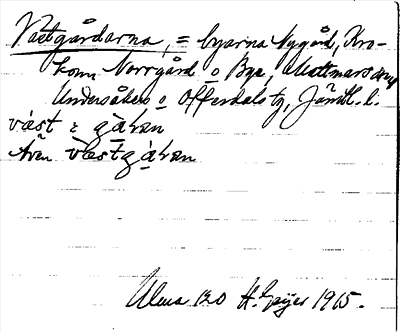 Västgårdarna, = byarna Nygård, Kro-
kom Norrgård o Bye, Mattmars
Undersåkers o Offerdals tg, Jämtl. l.
väst : gà̄ran
Även västgāran
Ulma 120 H. Geijer 1915.